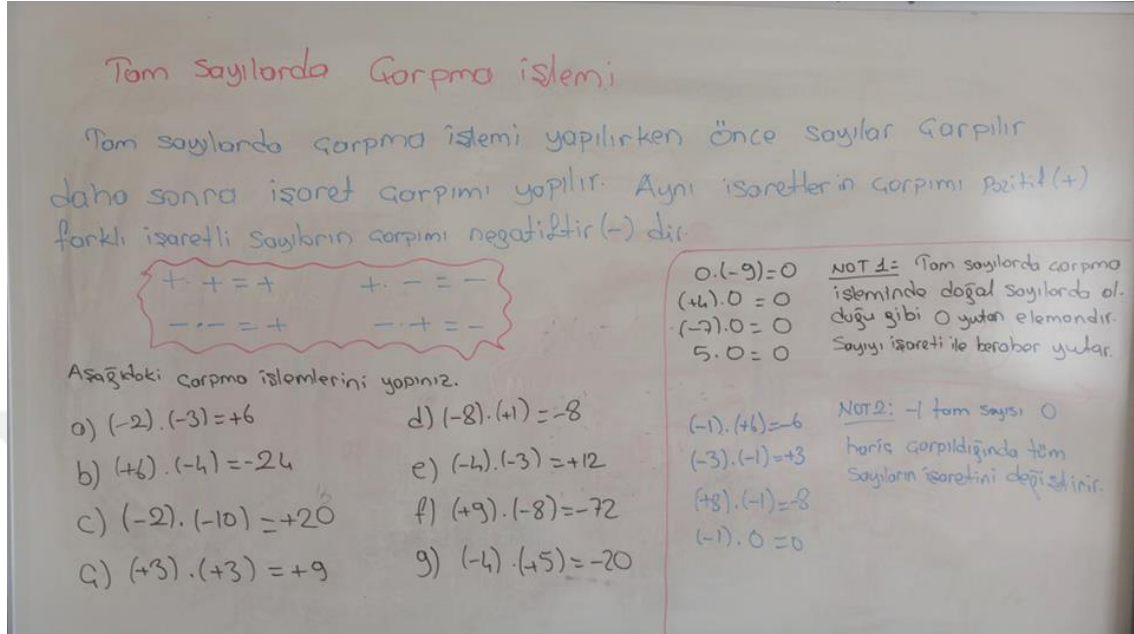 Tam Sayılarda Çarpma işlemi
Tam sayılarda çarpma işlemi yapılırken önce sayılar çarpılır
daha sonra işaret çarpımı yapılır. Aynı isaretlerin çarpımı Pozitif (+)
farklı işaretli sayıların çarpımı negatiftir (-) dir.
+ . + = +    + . - = -
- . - = +    - . + = -
Aşağıdaki çarpma işlemlerini yapınız.
a) (-2) . (-3) = +6
b) (+6) . (-4) = -24
c) (-2) . (-10) = +20
ç) (+3) . (+3) = +9
d) (-8) . (+1) = -8
e) (-4) . (-3) = +12
f) (+9) . (-8) = -72
g) (-4) . (+5) = -20
0 . (-9) = 0
(+4) . 0 = 0
(-7) . 0 = 0
5 . 0 = 0
NOT 1: Tam sayılarda çarpma
işleminde doğal sayılarda ol-
duğu gibi 0 yutan elemandır.
Sayıyı işareti ile beraber yutar.
(-1) . (+6) = -6
(-3) . (-1) = +3
(+8) . (-1) = -8
(-1) . 0 = 0
NOT 2: -1 tam sayısı 0
hariç çarpıldığında tüm
sayıların işaretini değiştirir.